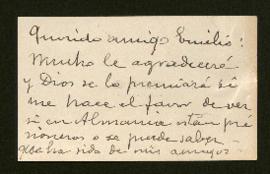 Querido amigo Emilio:
Mucho le agradeceré
y Dios se lo premiará si
me hace el favor de ver
si en Almania están pri
sioneros o se puede saber
que ha sido de mis amigos